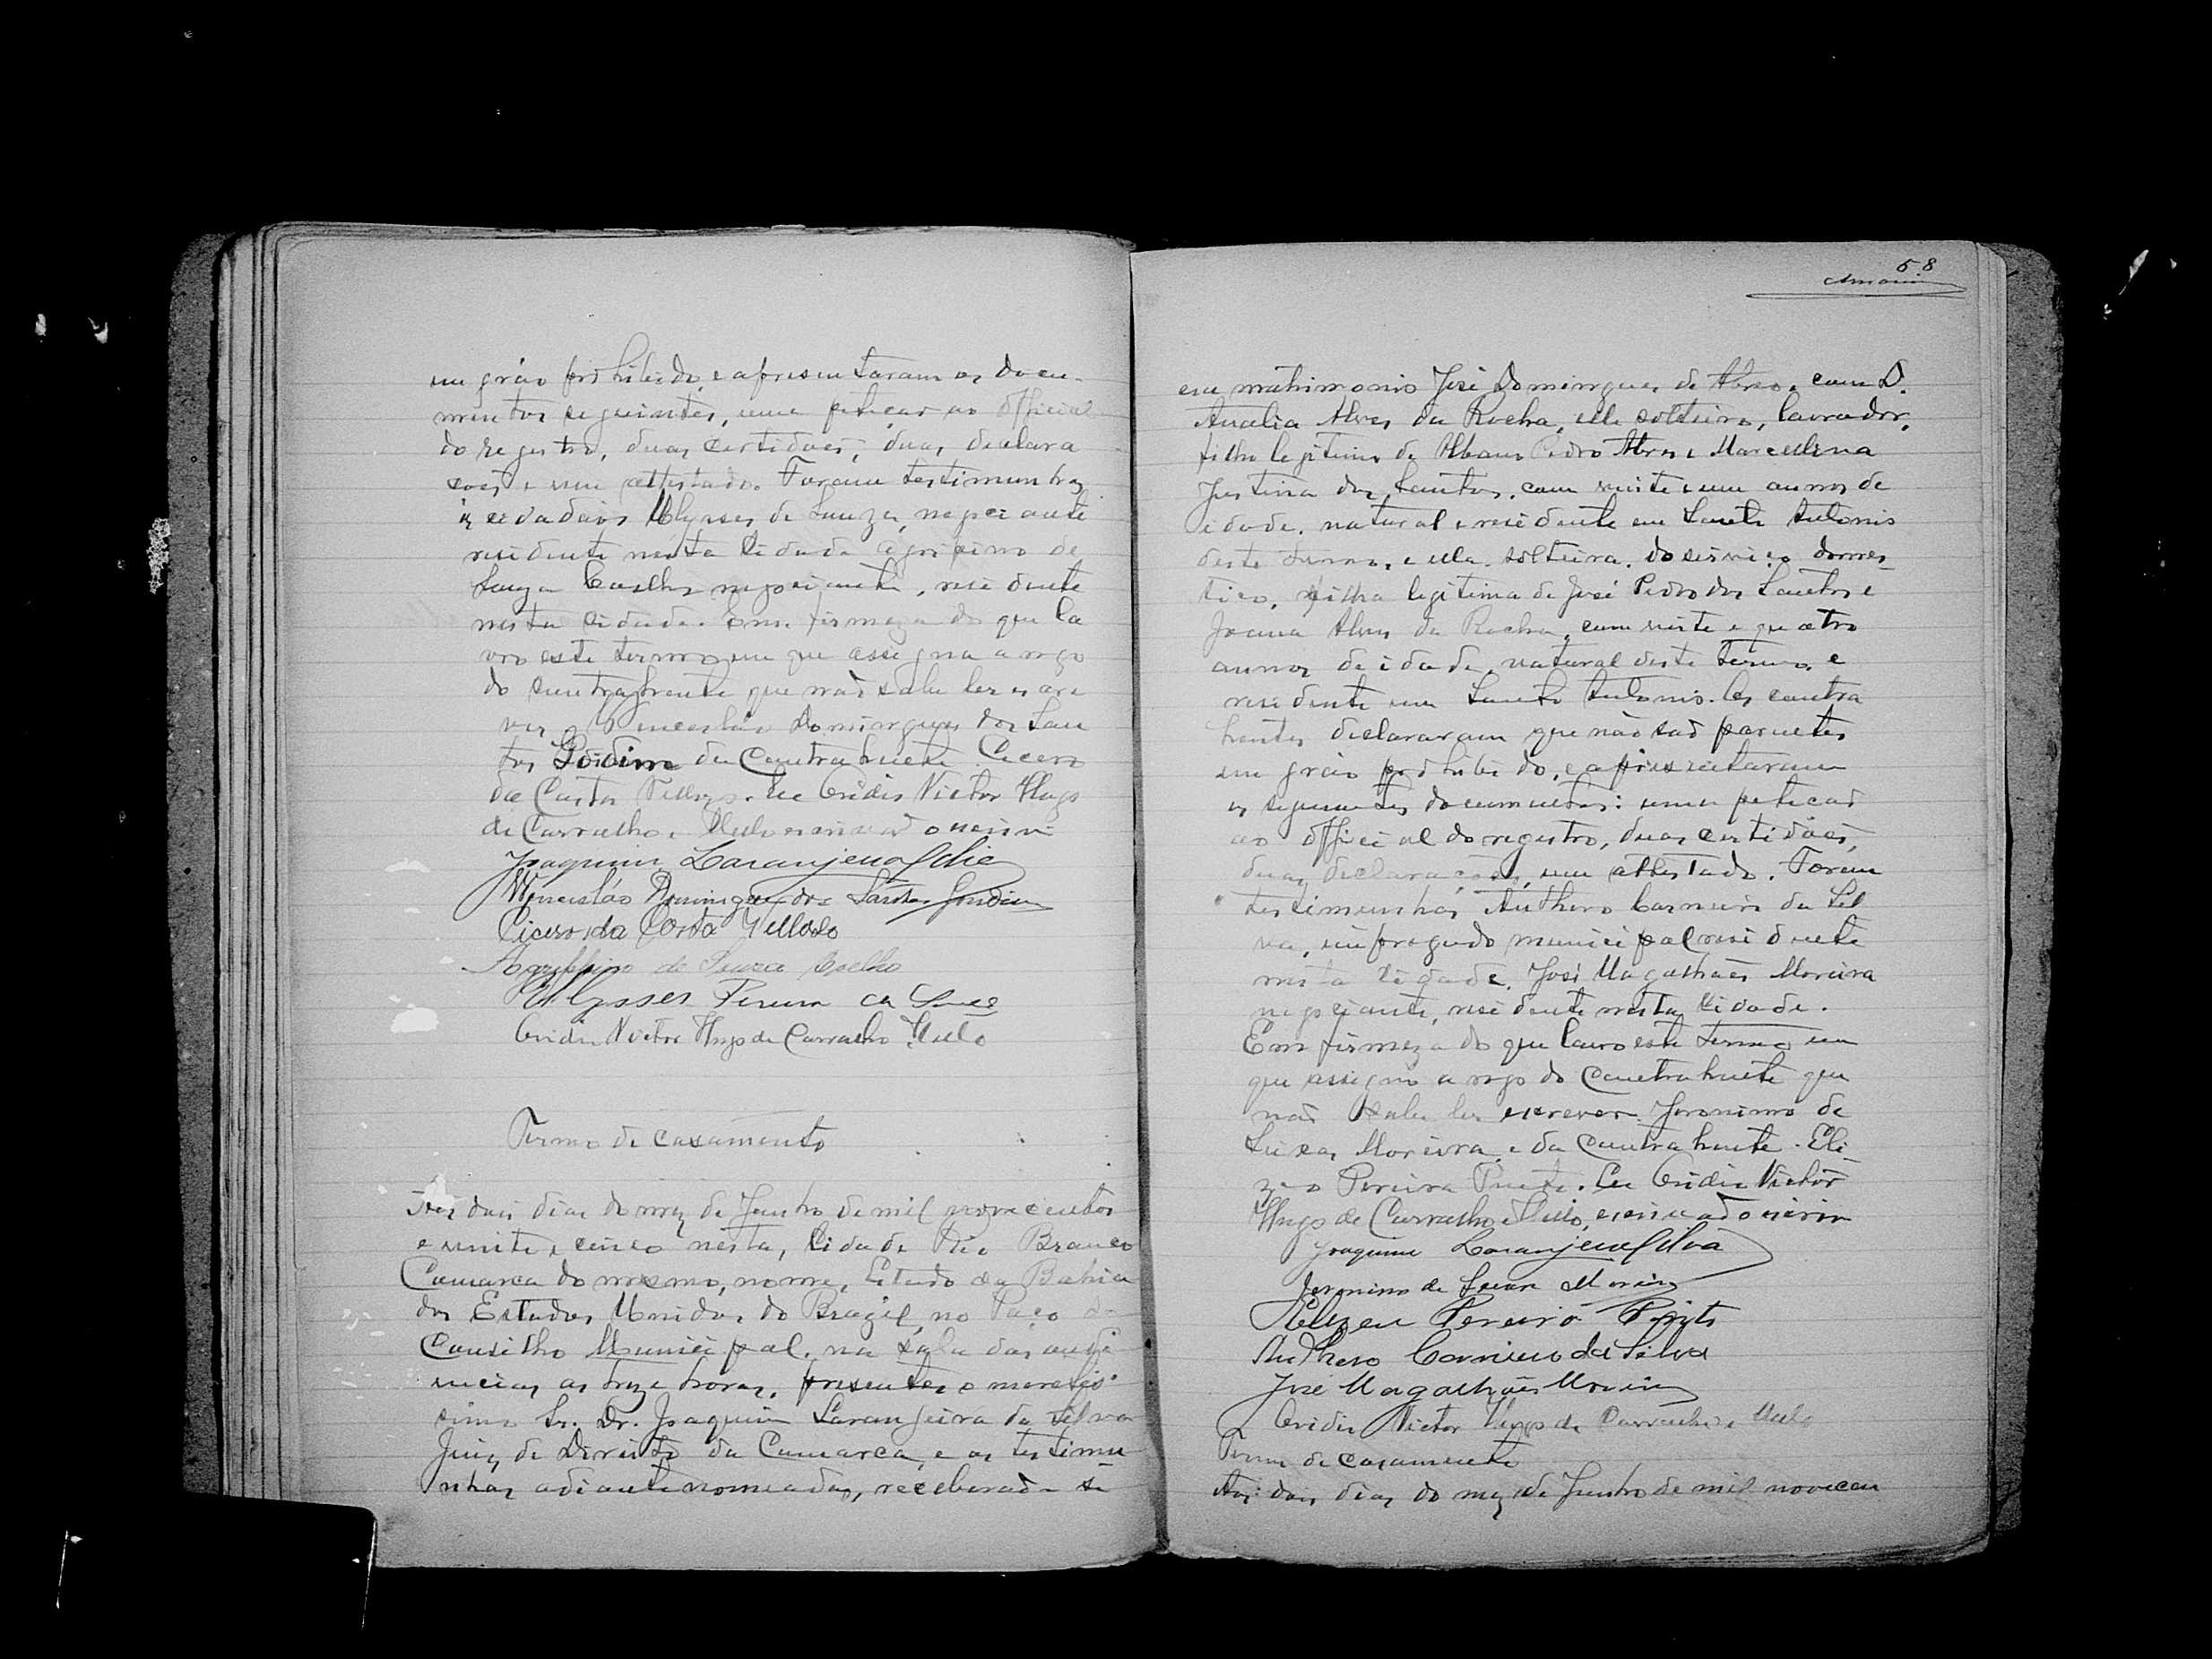 em gráo prohibido, e apresentaram os docu-
mentos seguintes, uma petiçaõ ao official
do registro, duas certidoẽs, duas declara
coẽs e um attestado. Foram testimunhas
os cidadaõs Ulysses de Souza, negociante
residente nesta Cidade Agripino de
Souza Coelho negociante, residente
nesta Cidade. Em firmeza do que la
vro este termo em que assigna a rogo
do contrahente que naõ sabe ler e scre
ver Wenceslão Domingues dos San
tos Gondim da Contrahente Cicero
da Costa Velloso. Eu Ovidio Victor Hugo
de Carvalho e Mello escrivaõ o escrevi
Joaquim Laranjeira Silva
Wenceslão Domingues dos Santos Gondim
Cicero da Costa Velloso
Agrippino de Souza Coelho
Ulysses
Ovidio Victor Hugo de Carvalho Mello
Termo de casamento
Aos dois dias do mez de Junho de mil novecentos
e vinte e cinco nesta, Cidade Rio Branco
Comarca do mesmo, nome, Estado da Bahia
dos Estados Unidos do Brazil, no Paço do
Conselho Municipal, na sala das audi
encias as treze horas, presentes o meretis
simo Sr. Dr. Joaquim Laranjeira da Silva
Juiz de Direito da Comarca, e as testimu
nhas adiante nomeadas, receberaõ se
58
em mathimonio José Domingues de Abreo, com D.
Analia Alves da Rocha, elle solteiro, lavrador,
filho legitimo de Pedro Abreo e Marcellina
Justina dos Santos, com vinte e um annos de
idade, natural e residente em Santo Antonio
deste termo, e ella solteira, do serviço domes
tico, filha legitima de José Pedro dos Santos e
Joanna Alves da Rocha, com vinte e quatro
annos de idade, natural deste termo, e
residente em Santo Antonio. Os contra
hentes declararam que não saõ parentes
em gráo prohibido, e apresentaram
os seguintes documentos: uma petiçaõ
ao official do registro, duas certidões,
duas declarações, um attestado. Foram
testimunhas Anthero Carneiro da Sil
va, empregado municipal residente
nesta Cidade, José Magalhães Moreira
negociante, residente nesta Cidade.
Em firmeza do que lavro este termo em
que assigno a rogo do Contrahente que
naõ sabe ler escrever Jeronimo de
Moreira, e da Contrahente. Eli
zeo Pereira Pinto. Eu Ovidio Victor
Hugo de Carvalho e Mello, escrivaõ o escrevi
Joaquim Laranjeira Silva
Jeronimo de Moreira
Elizeu Pereira Pinto
Anthero Carneiro da Silva
José Magalhães Moreira
Ovidio Victor Hugo de Carvalho e Mello
Termo de casamento
Aos dois dias do mez de Junho de mil novecen